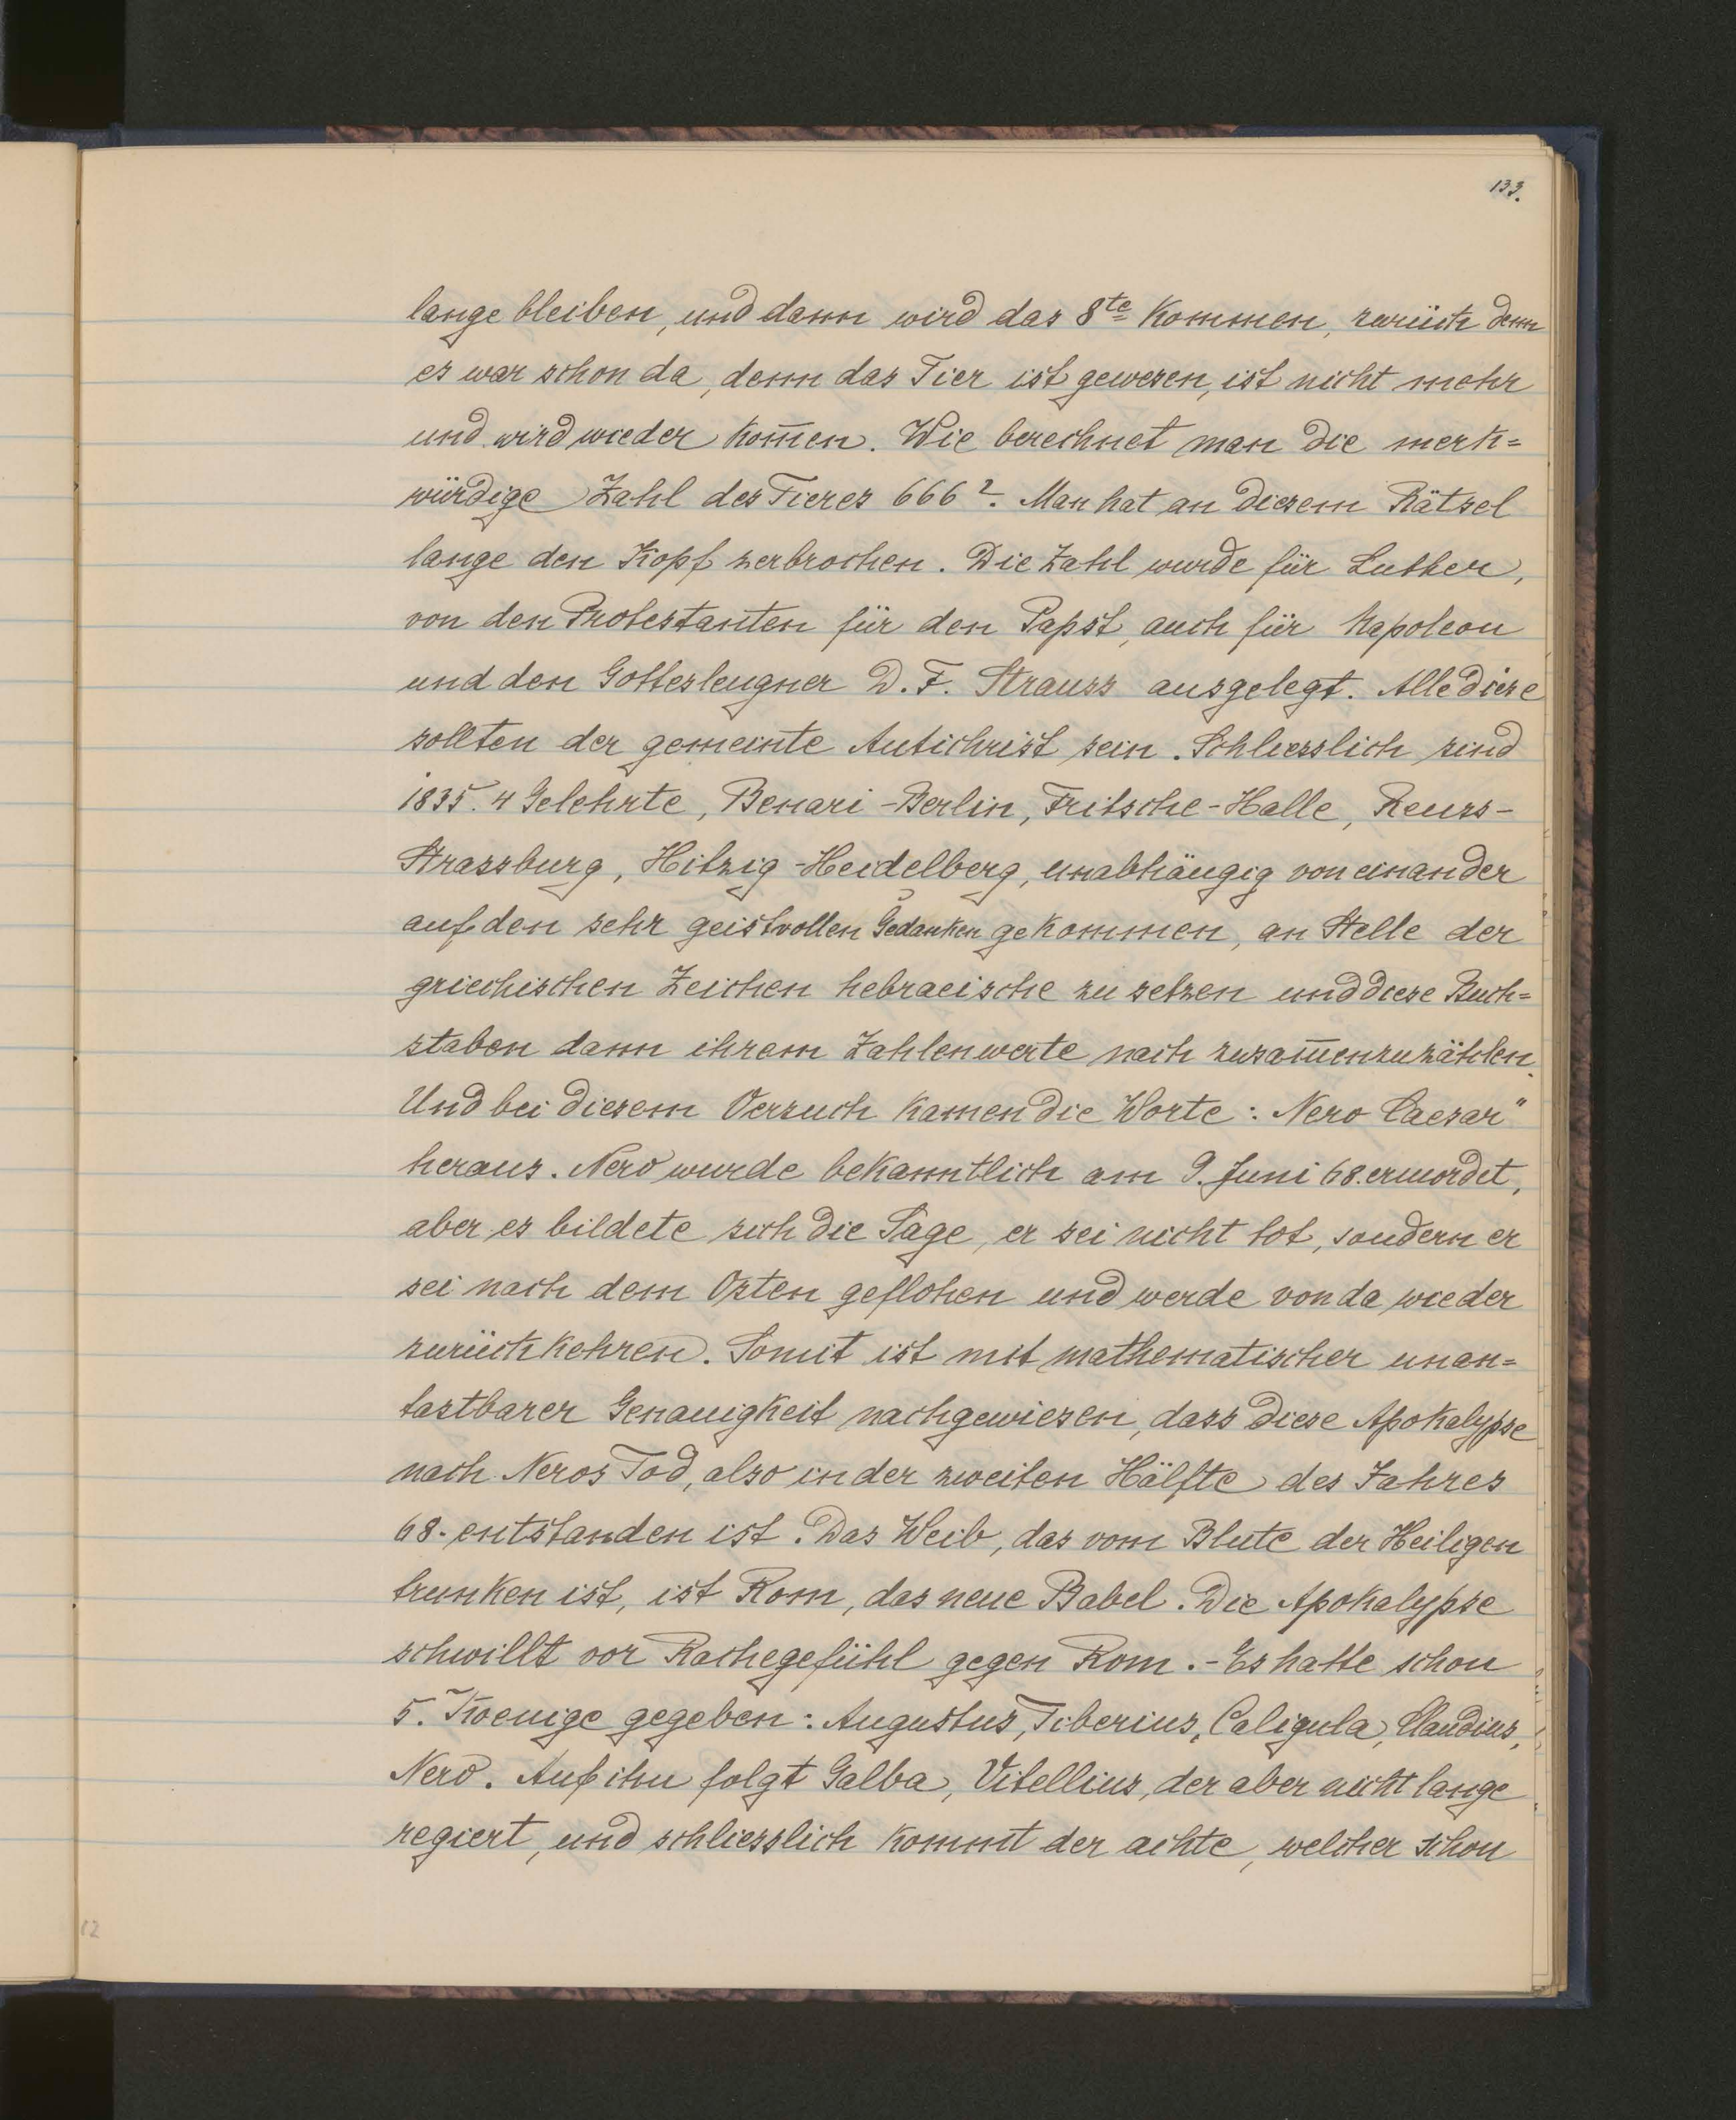 133.
lange bleiben, und dann wird das 8te kommen, zurück denn
es war schon da, denn das Tier ist gewesen, ist nicht mehr
und wird wieder kom̄en. Wie berechnet man die merk=
würdige Zahl des Tieres 666?. Man hat an diesem Rätsel
lange den Kopf zerbrochen. Die Zahl wurde für Luther,
von den Protestanten für den Papst, auch für Napoleon
und den Gottesleugner D. F. Strauss ausgelegt. Alle diese
sollten der gemeinte Antichrist sein. Schliesslich sind
1835. 4 Gelehrte, Benari-Berlin, Fritsche-Halle, Reuss-
Strassburg, Hitzig-Heidelberg, unabhängig voneinander
auf den sehr geistvollen Gedanken gekommen, an Stelle der
griechischen Zeichen hebraeische zu setzen und diese Buch=
staben dann ihrem Zahlenwerte nach zusam̄enzuzählen.
Und bei diesem Versuch kamen die Worte: Nero Caesar"
heraus. Nero wurde bekanntlich am 9. Juni 68. ermordet,
aber es bildete sich die Sage, er sei nicht tot, sondern er
sei nach dem Osten geflohen und werde von da wieder
zurückkehren. Somit ist mit mathematischer unan=
tastbarer Genauigkeit nachgewiesen, dass diese Apokalypse
nach Neros Tod, also in der zweiten Hälfte des Jahres
68. entstanden ist. Das Weib, das vom Blute der Heiligen
trunken ist, ist Rom, das neue Babel. Die Apokalypse
schwillt vor Rachegefühl gegen Rom. - Es hatte schon
5. Koenige gegeben: Augustus, Tiberius, Caligula, Claudius,
Nero. Auf ihn folgt Galba, Vitellius, der aber nicht lange
regiert, und schliesslich kommt der achte, welcher schon
12